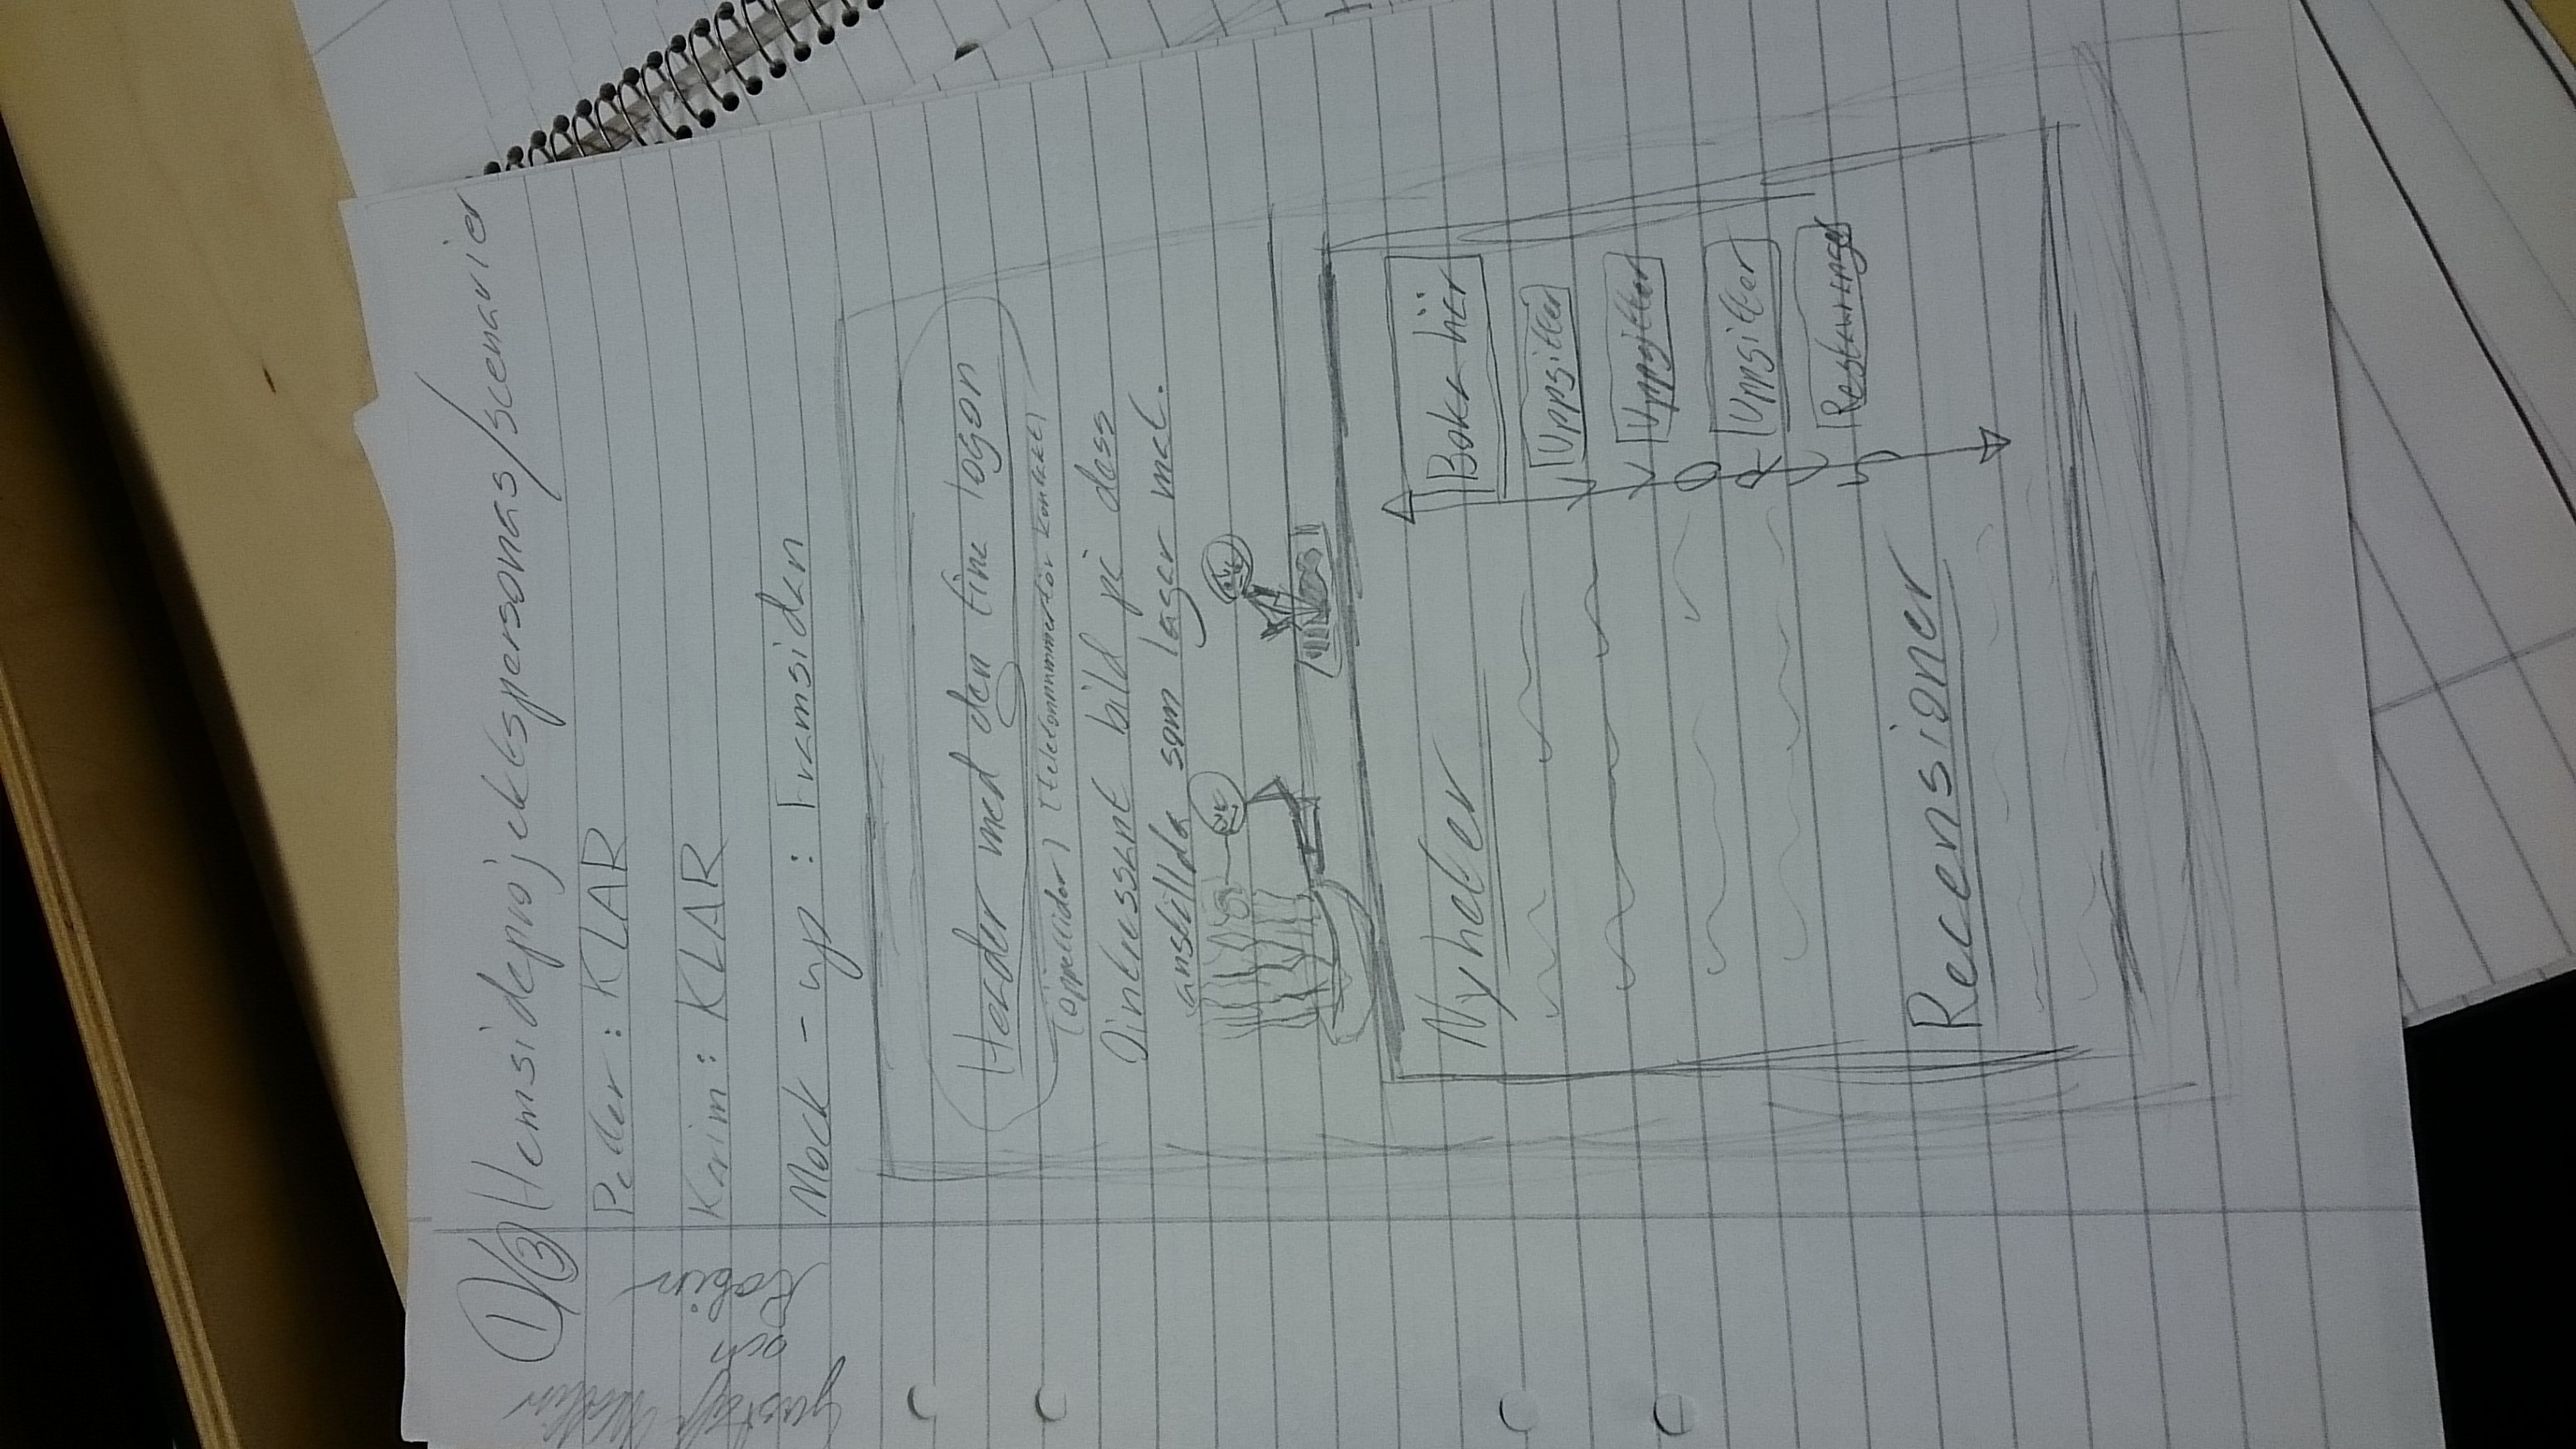 1/3 Hemsideprojektspersonas/scenarier
och
Robin
Petter: KLAR
Karim: KLAR
Mock-up: Framsidan
Header med den fina logon
(öppettider) (telefonnummer för kontakt)
Ointressant bild på dess
anställda som lagar mat.
Nyheter
Boka här
Uppgifter
Uppgifter
Uppgifter
SCRO
Recensioner